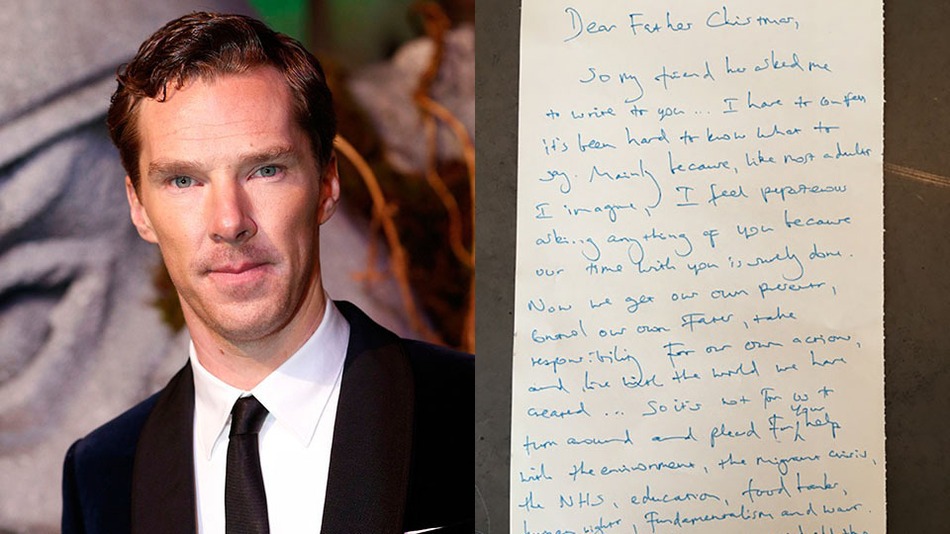 Dear Father Christmas,
So my friend has asked me
to write to you... I have to confess
it's been hard to know what to
say. Mainly because, like most adults
I imagine, I feel
asking anything of you because
our time with you is surely done.
Now we get our own presents,
our own Fates, take
responsibility for our own actions,
and live with the world we have
created... So it's not for us to
turn around and plead for your help
with the environment, the migrant crisis,
the NHS, education, food banks,
human rights, fundamentalism and war.